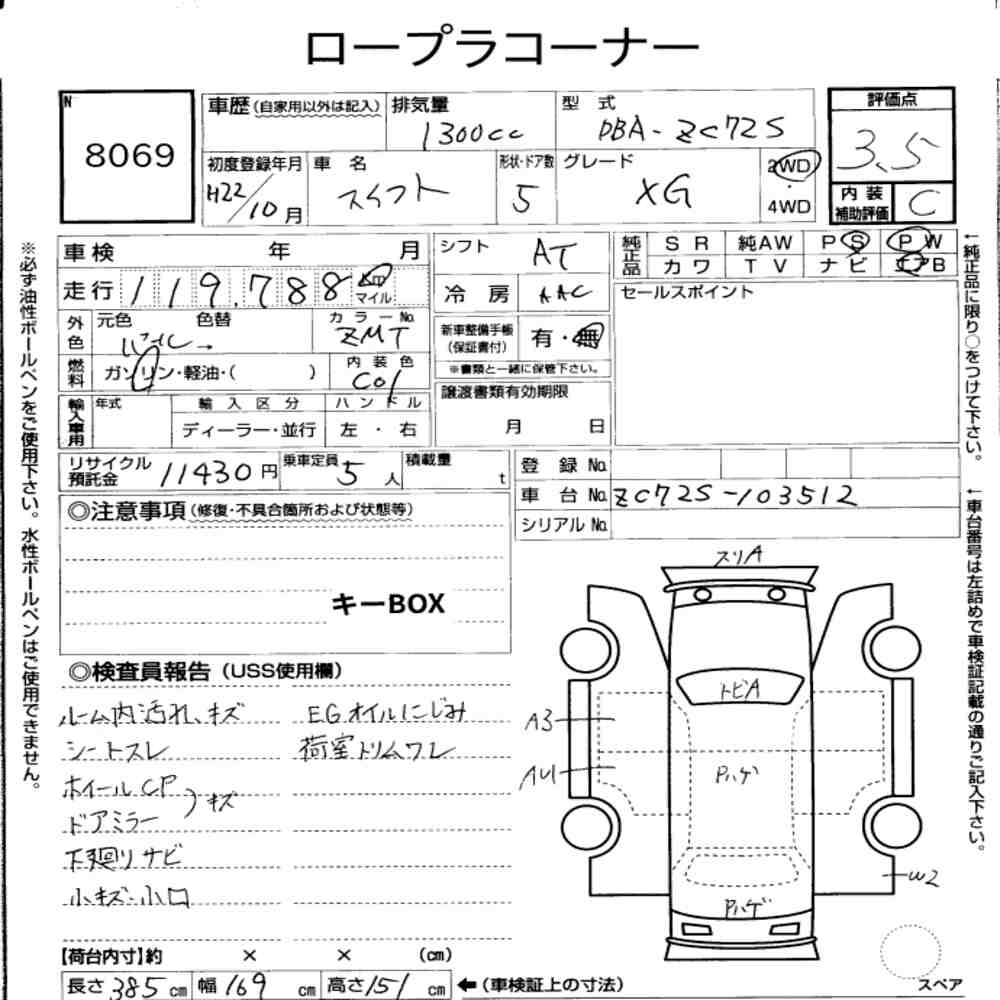 ロープラコーナー
N
8069
車歴(自家用以外は記入)
排気量
1300cc
型 式
DBA-ZC72S
評価点
3.5
初度登録年月
H22/10月
車 名
スイフト
形状・ドア数
5
グレード
XG
2WD
・
4WD
内装
補助評価
C
車検 年 月
走行 119.788
マイル
外色
元色 色替
パール→
カラーNo.
ZMT
燃料
ガソリン・軽油・( )
内装色
輸入車用
年式
輸入区分
ディーラー・並行
ハンドル
左・右
シフト
AT
冷房
AAC
新車整備手帳
(保証書付)
有・無
※書類と一緒に保管下さい。
譲渡書類有効期限
月 日
純正品
SR 純AW PS PW
カワ TV ナビ エアB
セールスポイント
リサイクル
預託金
11430円
乗車定員
5人
積載量
t
登録No.
車台No. ZC72S-103512
シリアルNo.
◎注意事項(修復・不具合箇所および状態等)
キーBOX
◎検査員報告(USS使用欄)
ルーム内汚れ、キズ
シートスレ
ホイールCP
ドアミラー
)キズ
下廻りサビ
小キズ・小凹
EGオイルにじみ
荷室トリムワレ
スリA
トビA
A3
AU1
Pハゲ
Pハゲ
W2
スペア
【荷台内寸】約 × × (cm)
長さ385cm 幅169cm 高さ151cm
←(車検証上の寸法)
※必ず油性ボールペンをご使用下さい。水性ボールペンはご使用できません。
←純正品に限り○をつけて下さい。
←車台番号は左詰めで車検証記載の通りご記入下さい。